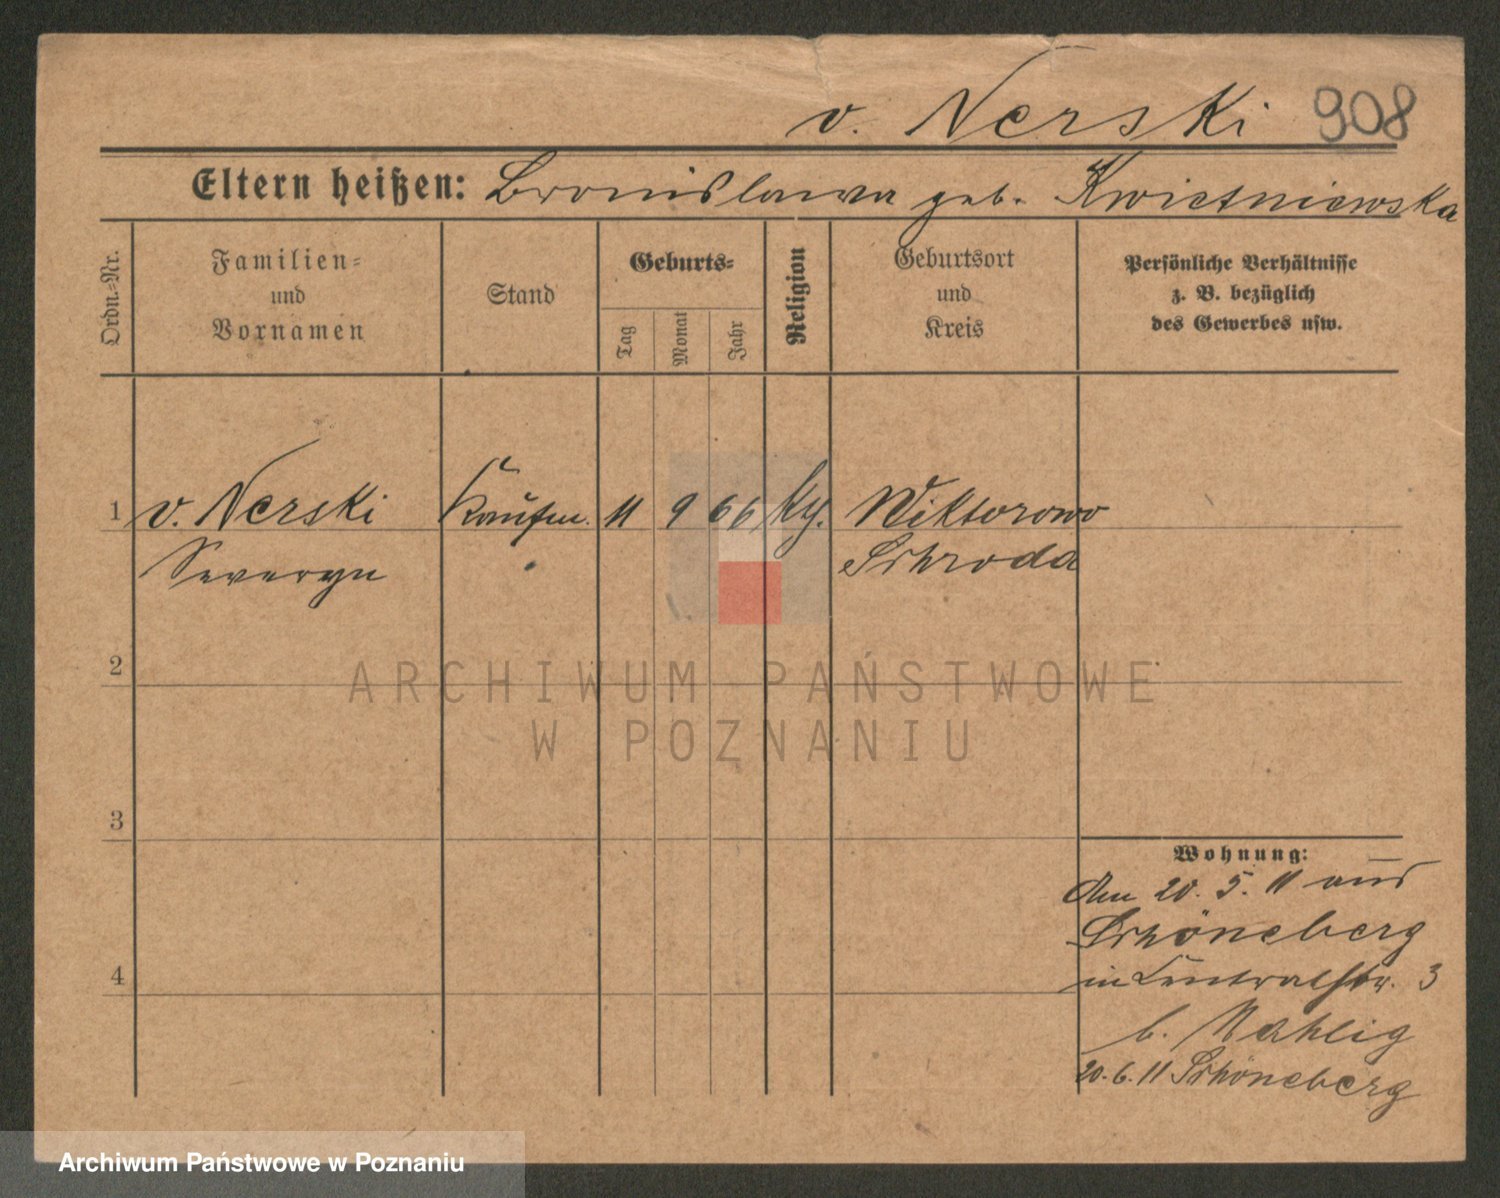 v. Nerski 908
Eltern heißen: Bronislawa geb. Kwietniewska
Ordn.-Nr.
Familien-
und
Vornamen
Stand
Geburts-
Tag
Monat
Jahr
Religion
Geburtsort
und
Kreis
Persönliche Verhältnisse
z. B. bezüglich
des Gewerbes usw.
1 v. Nerski Kaufm. 11 9 66 Wiktorowo
Severyn Schroda
ARCHIWUM PAŃSTWOWE
W POZNANIU
2
3
4
Wohnung:
Am 20. 5. 11 aus
Schöneberg
in Centralstr. 3
b. Mahlig
20. 6. 11 Schöneberg
Archiwum Państwowe w Poznaniu